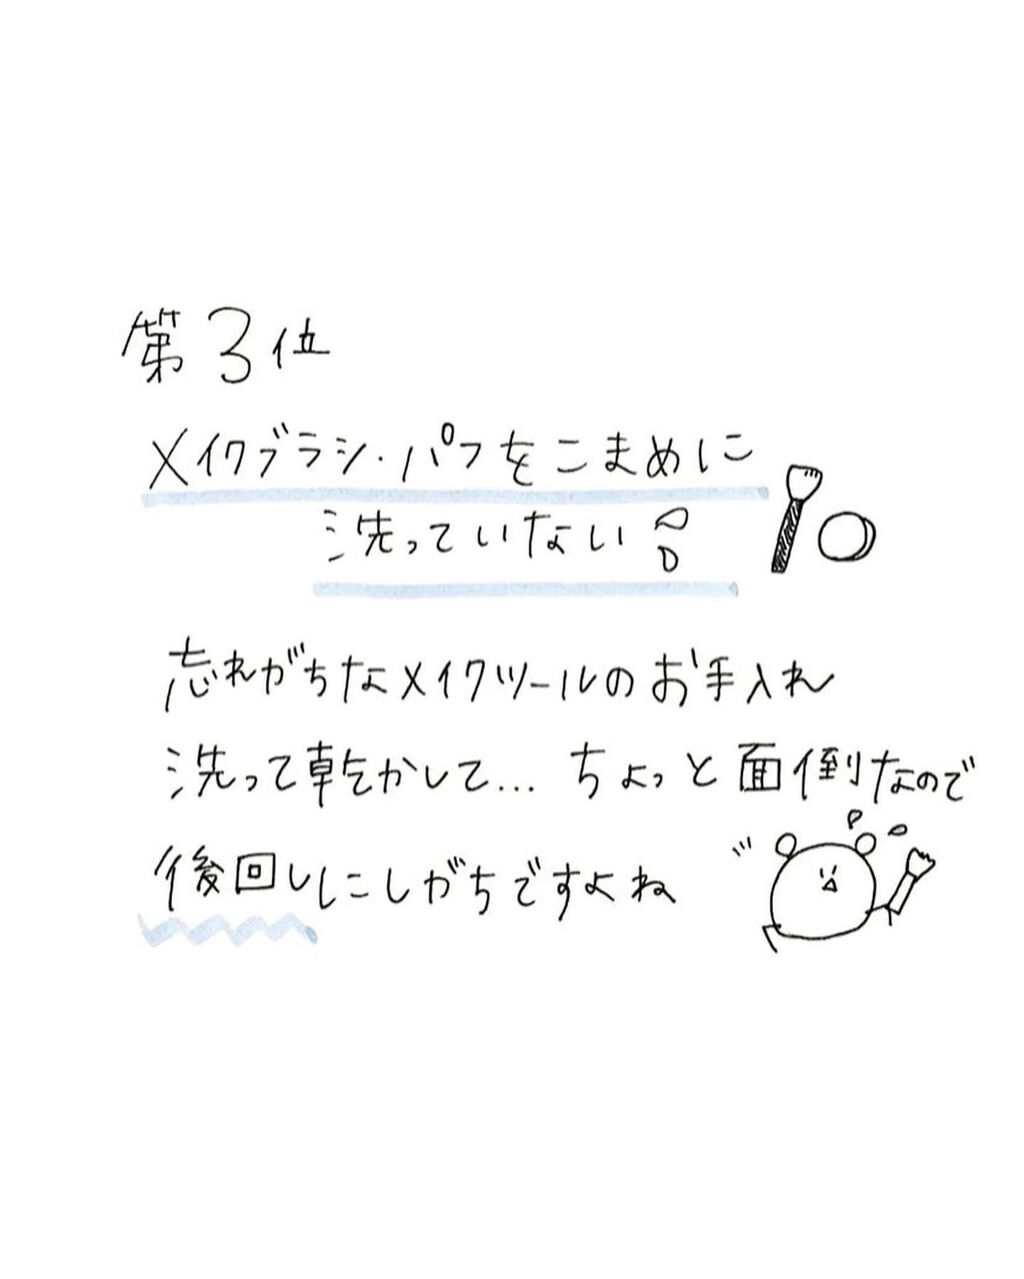 第3位
メイクブラシ・パフをこまめに
洗っていない
忘れがちなメイクツールのお手入れ
洗って乾かして... ちょっと面倒なので
後回しにしがちですよね